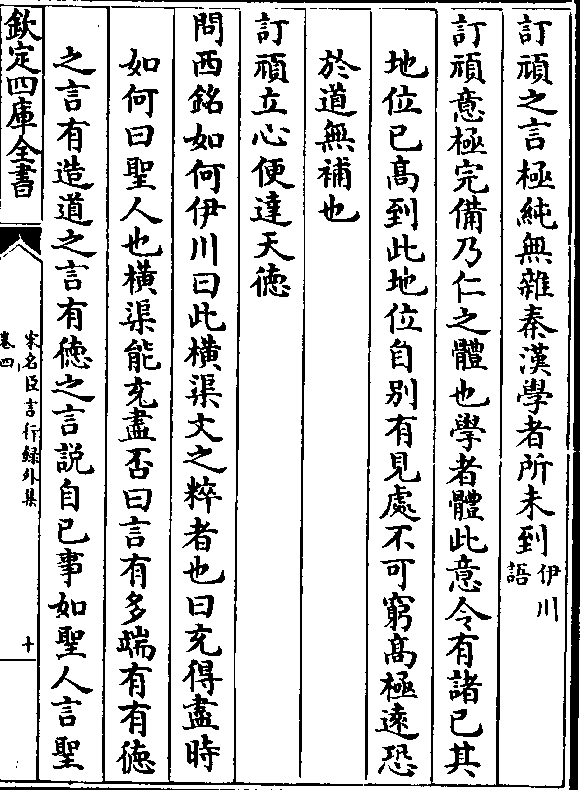 訂頑之言極純無雜秦漢學者所未到伊川
語
訂頑意極完備乃仁之體也學者體此意令有諸已其
地位已髙到此地位自别有見處不可窮髙極逺恐
於道無補也
訂頑立心便達天徳
問西銘如何伊川曰此橫渠文之粹者也曰充得盡時
如何曰聖人也橫渠能充盡否曰言有多端有有徳
之言有造道之言有徳之言説自已事如聖人言聖
欽定四庫全書
宋名臣言行録外集
卷四
十